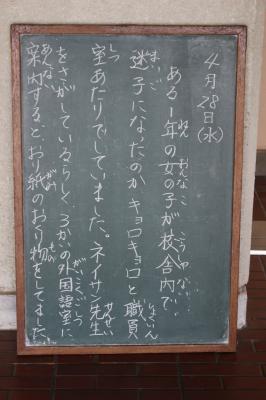 4月28日(水)
ある1年の女の子が校舎内で
迷子になったのかキョロキョロと職員
室あたりでしていました。ネイサン先生
をさがしているらしく、3かいの外国語室に
案内すると、おり紙のおくり物をしてました。